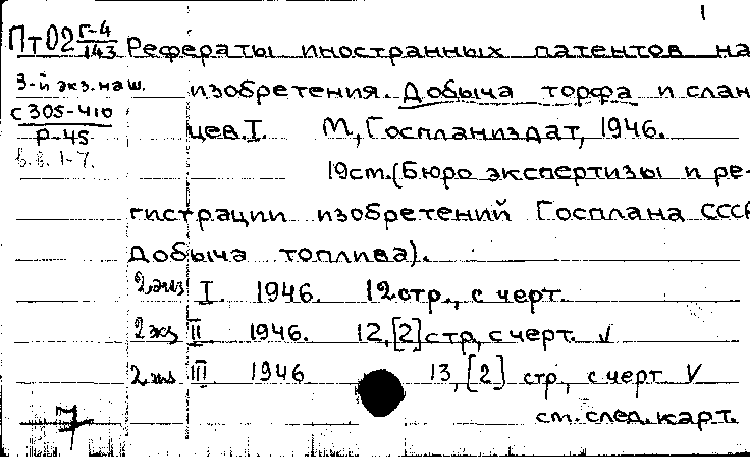 1
ПТ02 Г-4/143 Рефераты иностранных патентов на
3-й экз. маш. изобретения. Добыча торфа и слан
с 305-410 цев. I. М., Госпланиздат, 1946.
Р-45
в. в. 1-7. 19 см. (Бюро экспертизы и ре-
гистрации изобретений Госплана СССР
Добыча топлива).
2 экз I. 1946. 12 стр., с черт.
2 экз II 1946. 12, [2] стр, с черт. V
2 экз III 1946. 13, [2] стр., с черт V
7 см. след. карт.